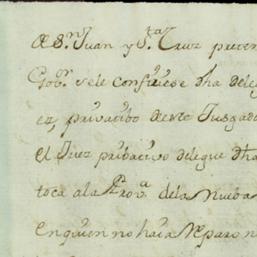 de Sn. Juan y Sta. Cruz preten
Govor. se le confiriese dha deleg
ez, privatibo de este Jusgado
el Juez pribatibo delegue dha
toca a la Prova. de la Nueba
en quien no havia reparo n